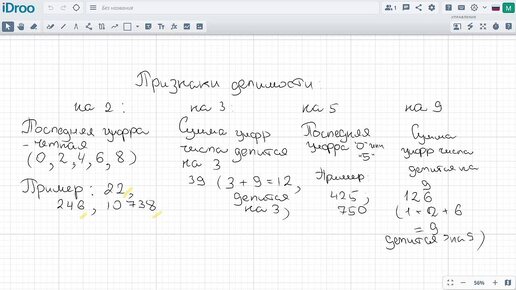 iDroo
Без названия
1
УПРАВЛЕНИЯ
M
Признаки делимости:
на 2:
Последняя цифра
- четная
(0, 2, 4, 6, 8)
Пример: 22,
246, 10738
на 3:
Сумма цифр
числа делится
на 3
39 (3 + 9 = 12,
делится
на 3)
на 5
Последняя
цифра "0" или
"5"
Пример:
425,
750
на 9
Сумма
цифр числа
делится на
9
126
(1 + 2 + 6
= 9
делится на 9)
56%